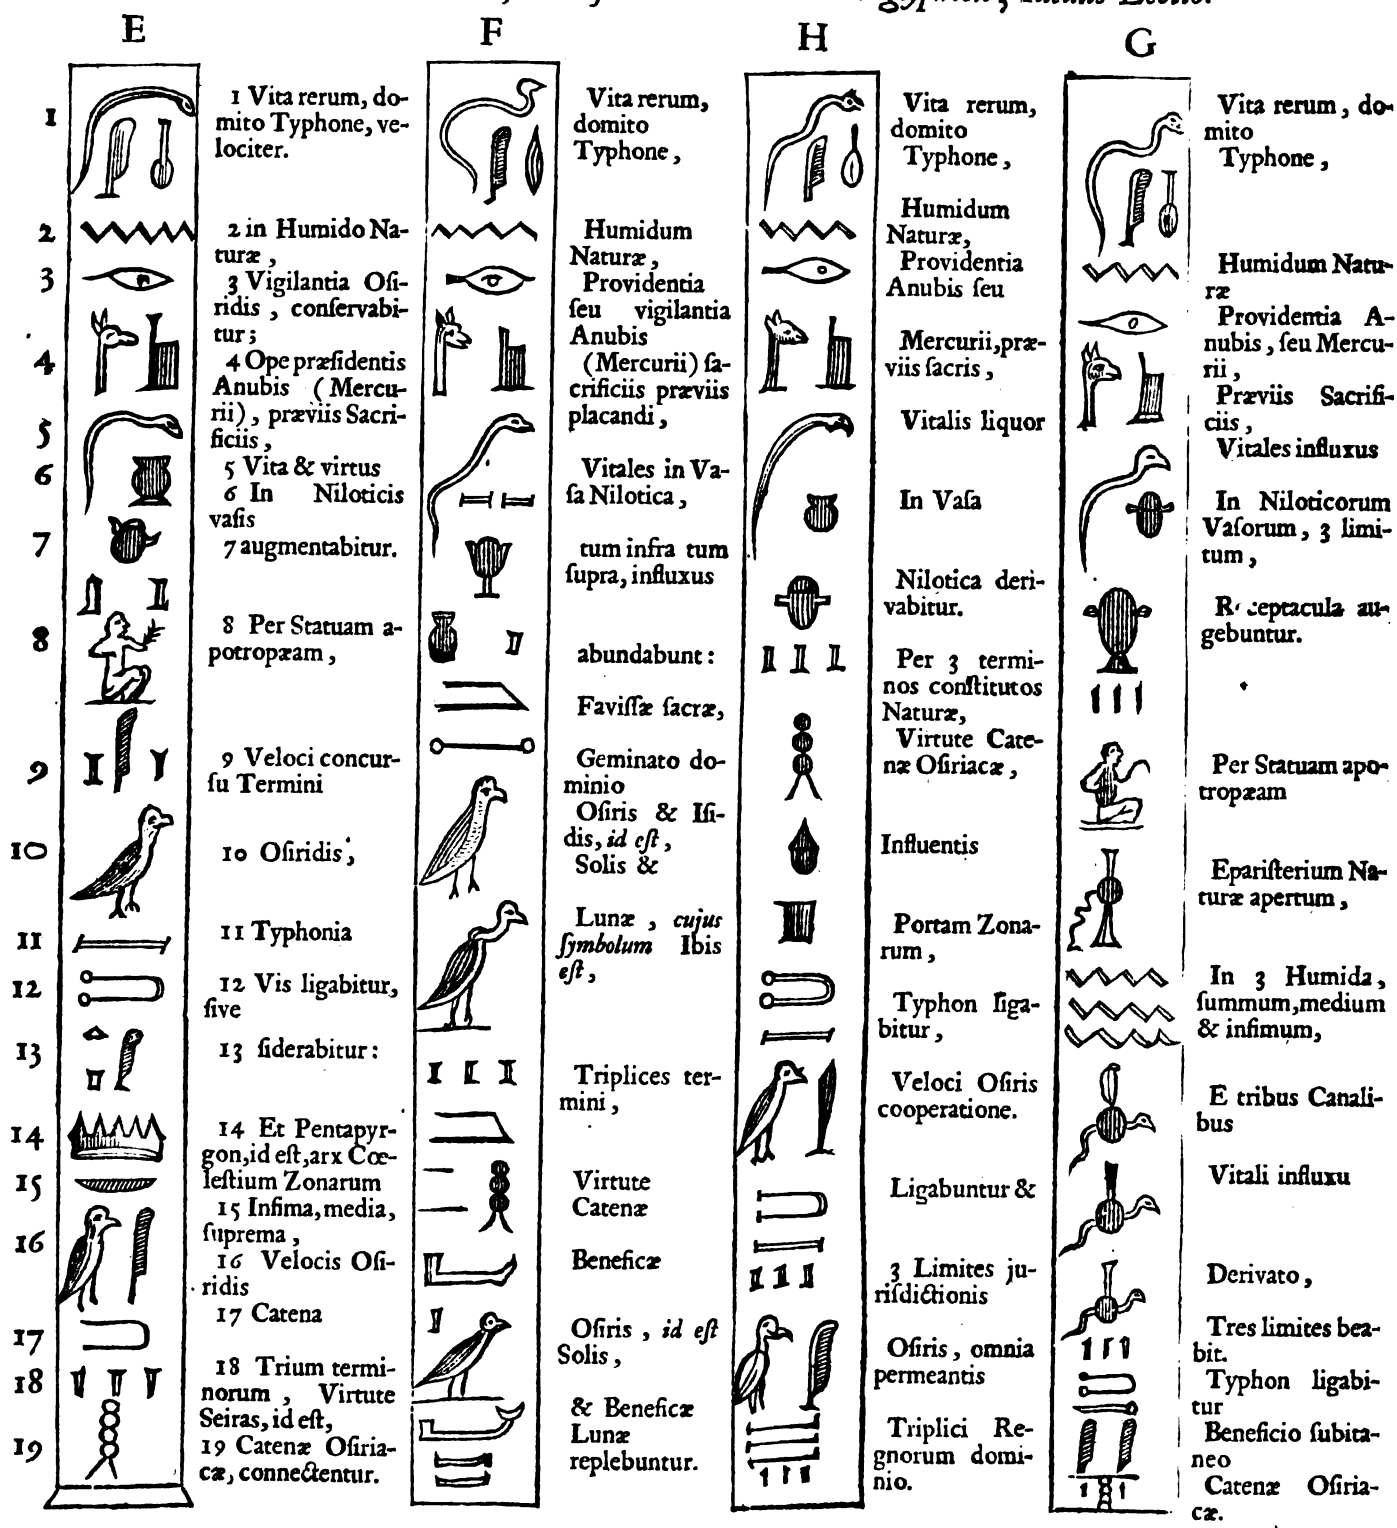 E
1
2
3
4
5
6
7
8
9
10
11
12
13
14
15
16
17
18
19
1 Vita rerum, do-
mito Typhone, ve-
lociter.
2 in Humido Na-
turæ,
3 Vigilantia Oſi-
ridis, conſervabi-
tur;
4 Ope præſidentis
Anubis (Mercu-
rii), præviis Sacri-
ficiis,
5 Vita & virtus
6 In Niloticis
vaſis
7 augmentabitur.
8 Per Statuam a-
potropæam,
9 Veloci concur-
ſu Termini
10 Oſiridis,
11 Typhonia
12 Vis ligabitur,
ſive
13 ſiderabitur:
14 Et Pentapyr-
gon, id eſt, arx Cœ-
leſtium Zonarum
15 Infima, media,
ſuprema,
16 Velocis Oſi-
ridis
17 Catena
18 Trium termi-
norum, Virtute
Seiras, id eſt,
19 Catenæ Oſiria-
cæ, connectentur.
F
Vita rerum,
domito
Typhone,
Humidum
Naturæ,
Providentia
ſeu vigilantia
Anubis
(Mercurii) ſa-
crificiis præviis
placandi,
Vitales in Va-
ſa Nilotica,
tum infra tum
ſupra, influxus
abundabunt:
Faviſſæ ſacræ,
Geminato do-
minio
Oſiris & Iſi-
dis, id eſt,
Solis &
Lunæ, cujus
ſymbolum Ibis
eſt,
Triplices ter-
mini,
Virtute
Catenæ
Beneficæ
Oſiris, id eſt
Solis,
& Beneficæ
Lunæ
replebuntur.
H
Vita rerum,
domito
Typhone,
Humidum
Naturæ,
Providentia
Anubis ſeu
Mercurii, præ-
viis ſacris,
Vitalis liquor
In Vaſa
Nilotica deri-
vabitur.
Per 3 termi-
nos conſtitutos
Naturæ,
Virtute Cate-
næ Oſiriacæ,
Influentis
Portam Zona-
rum,
Typhon liga-
bitur,
Veloci Oſiris
cooperatione.
Ligabuntur &
3 Limites ju-
riſdictionis
Oſiris, omnia
permeantis
Triplici Re-
gnorum domi-
nio.
G
Vita rerum, do-
mito
Typhone,
Humidum Natu-
ræ
Providentia A-
nubis, ſeu Mercu-
rii,
Præviis Sacrifi-
ciis,
Vitales influxus
In Niloticorum
Vaſorum, 3 limi-
tum,
Receptacula au-
gebuntur.
Per Statuam apo-
tropæam
Epariſterium Na-
turæ apertum,
In 3 Humida,
ſummum, medium
& infimum,
E tribus Canali-
bus
Vitali influxu
Derivato,
Tres limites bea-
bit.
Typhon ligabi-
tur
Beneficio ſubita-
neo
Catenæ Oſiria-
cæ.